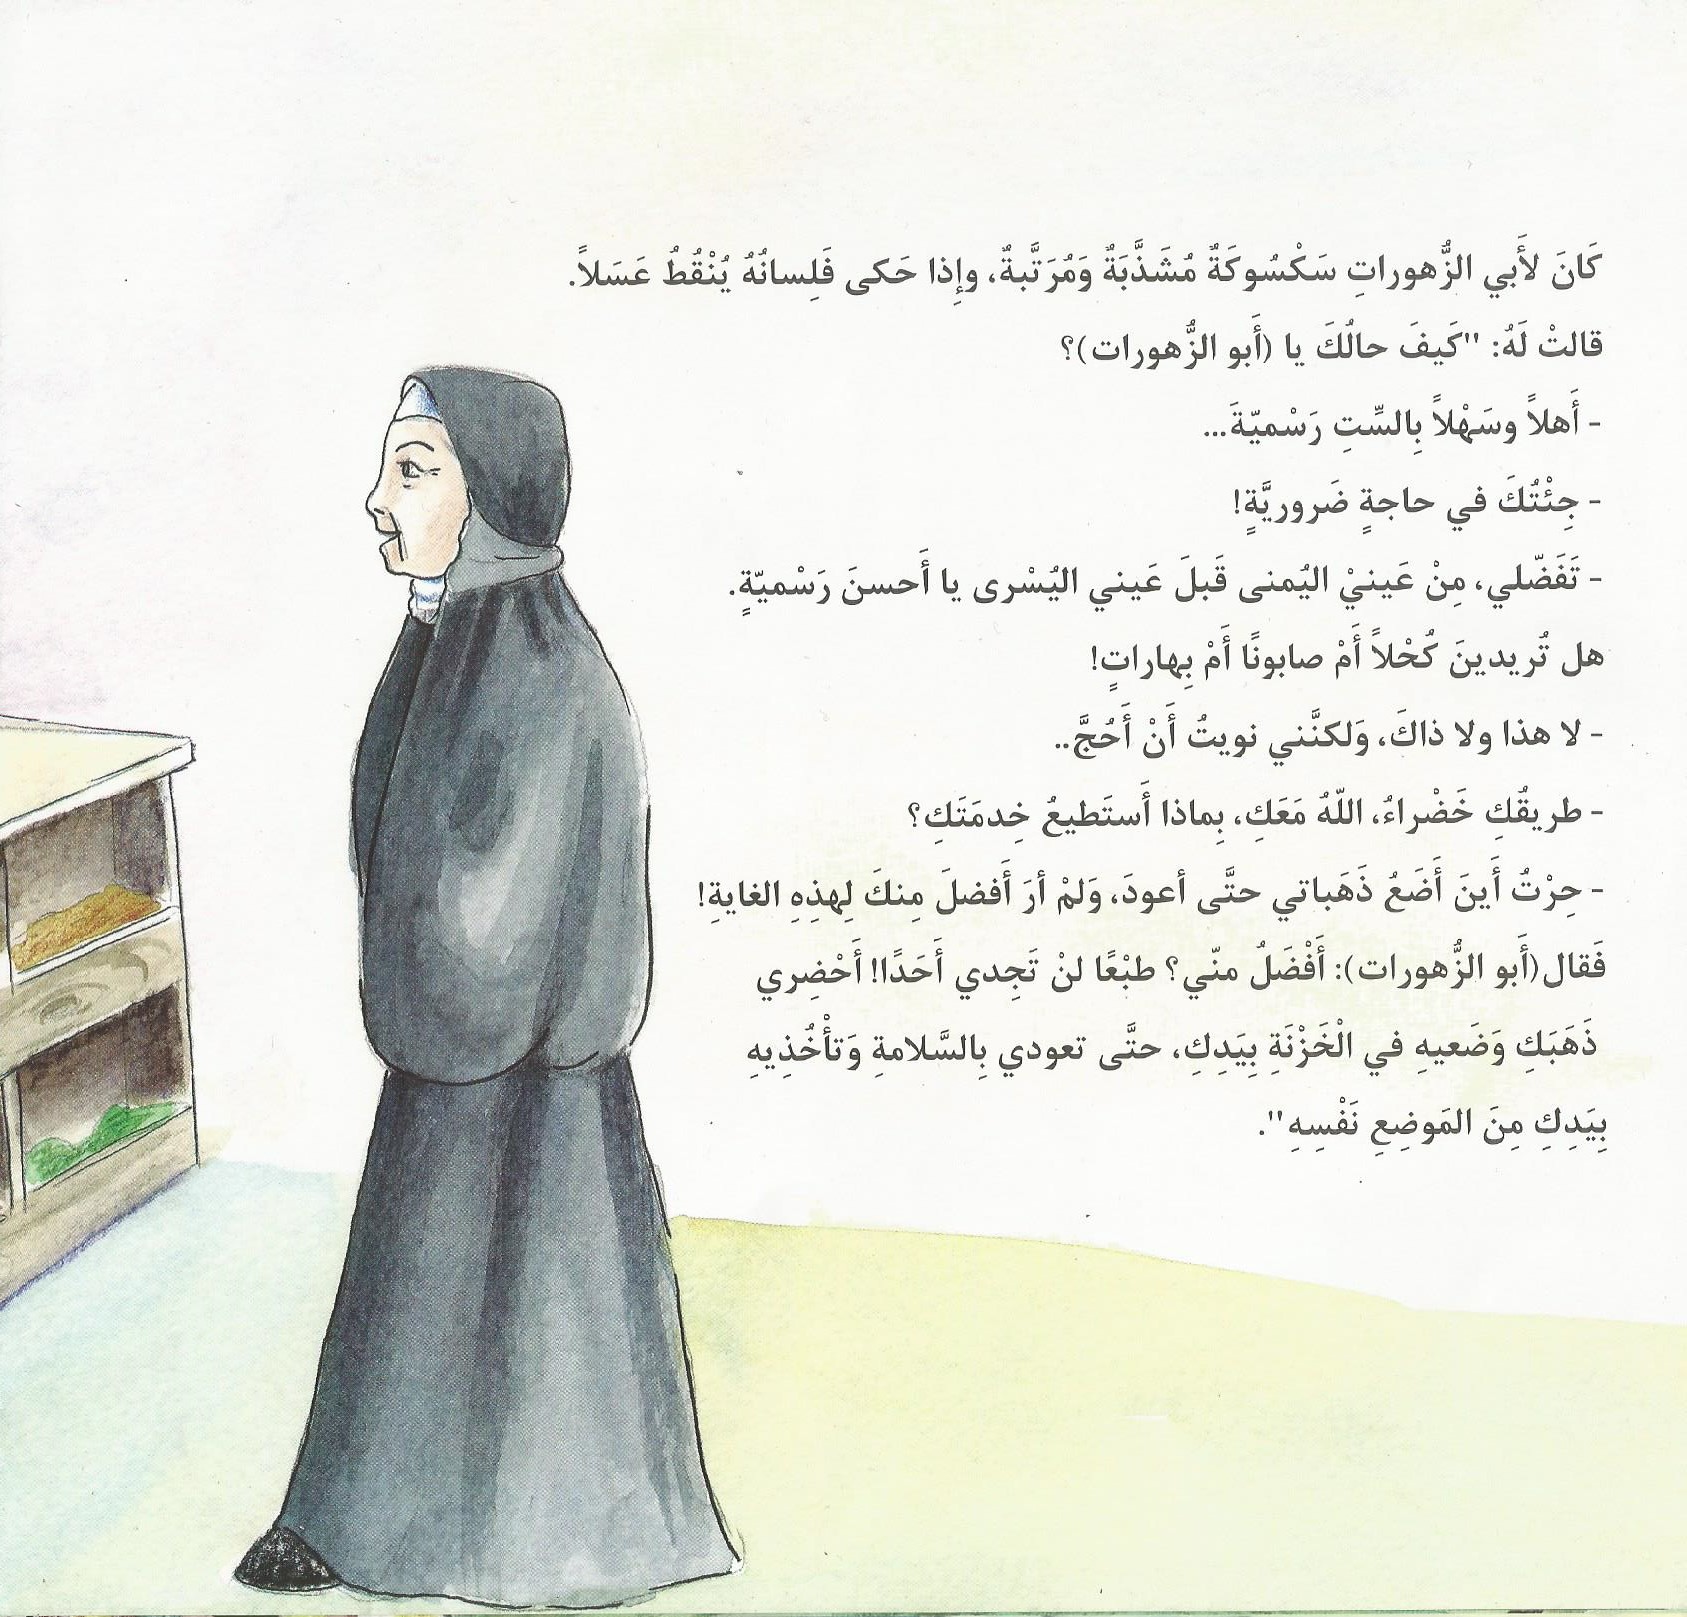 كَانَ لأَبي الزُّهوراتِ سَكْسُوكَةٌ مُشَذَّبَةٌ وَمُرَتَّبةٌ، وإِذا حَكى فَلِسانُهُ يُنْقُطُ عَسَلاً.
قالتْ لَهُ: "كَيفَ حالُكَ يا (أَبو الزُّهورات)؟
- أَهلاً وسَهْلاً بِالسِّتِ رَسْميّةَ...
- جِئْتُكَ في حاجةٍ ضَروريَّةٍ!
- تَفَضّلي، مِنْ عَينيْ اليُمنى قَبلَ عَيني اليُسْرى يا أَحسنَ رَسْميّةٍ.
هل تُريدينَ كُحْلاً أَمْ صابونًا أَمْ بِهاراتٍ!
- لا هذا ولا ذاكَ، وَلكنَّني نويتُ أَنْ أَحُجَّ..
- طريقُكِ خَضْراءُ، اللّهُ مَعَكِ، بِماذا أَستَطيعُ خِدمَتَكِ؟
- حِرْتُ أَينَ أَضَعُ ذَهَباتي حتَّى أعودَ، وَلمْ أرَ أَفضلَ مِنكَ لِهذِهِ الغايةِ!
فَقال(أَبو الزُّهورات): أَفْضَلُ منّي؟ طبْعًا لنْ تَجِدي أَحَدًا! أَحْضِري
ذَهَبَكِ وَضَعيهِ في الْخَزْنَةِ بِيَدِكِ، حتَّى تعودي بِالسَّلامةِ وَتأْخُذِيهِ
بِيَدِكِ مِنَ المَوضِعِ نَفْسِهِ".